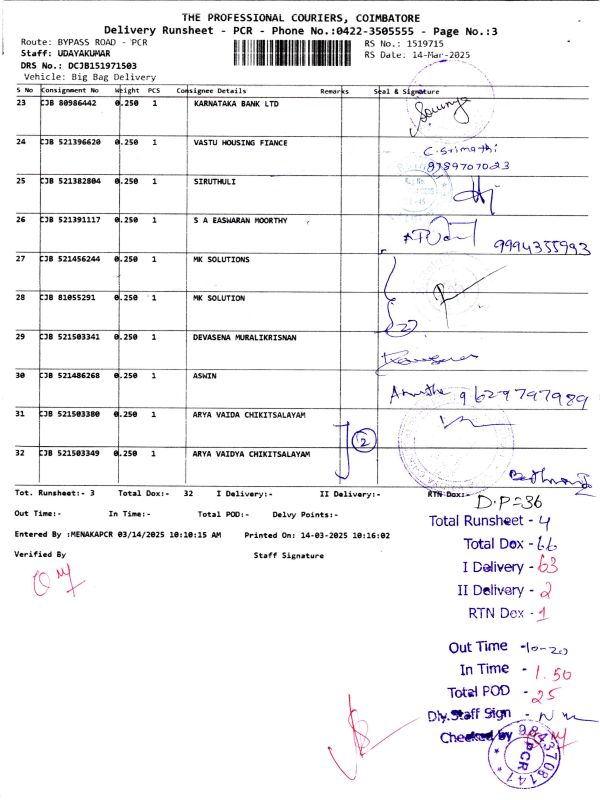 THE PROFESSIONAL COURIERS, COIMBATORE
Delivery Runsheet - PCR - Phone No.:0422-3505555 - Page No.:3
Route: BYPASS ROAD - PCR RS No.: 1519715
Staff: UDAYAKUMAR RS Date: 14-Mar-2025
DRS No.: DCJB151971503
Vehicle: Big Bag Delivery
S No Consignment No Weight PCS Consignee Details Remarks Seal & Signature
23 CJB 80986442 0.250 1 KARNATAKA BANK LTD
24 CJB 521396620 0.250 1 VASTU HOUSING FIANCE
C. Srimathi
9789707023
25 CJB 521382804 0.250 1 SIRUTHULI
26 CJB 521391117 0.250 1 S A EASWARAN MOORTHY
9994355993
27 CJB 521456244 0.250 1 MK SOLUTIONS
28 CJB 81055291 0.250 1 MK SOLUTION
2
29 CJB 521503341 0.250 1 DEVASENA MURALIKRISNAN
30 CJB 521486268 0.250 1 ASWIN
9629797989
31 CJB 521503380 0.250 1 ARYA VAIDA CHIKITSALAYAM
2
32 CJB 521503349 0.250 1 ARYA VAIDYA CHIKITSALAYAM
Tot. Runsheet:- 3 Total Dox:- 32 I Delivery:- II Delivery:- RTN Dox:-
D.P=36
Out Time:- In Time:- Total POD:- Delvy Points:-
Entered By :MENAKAPCR 03/14/2025 10:10:15 AM Printed On: 14-03-2025 10:16:02
Verified By Staff Signature
Total Runsheet - 4
Total Dox - 66
I Delivery - 63
II Delivery - 2
RTN Dox - 1
Out Time - 10-20
In Time - 1.50
Total POD - 25
Dly.Staff Sign -
Checked by
9843708141
PCR